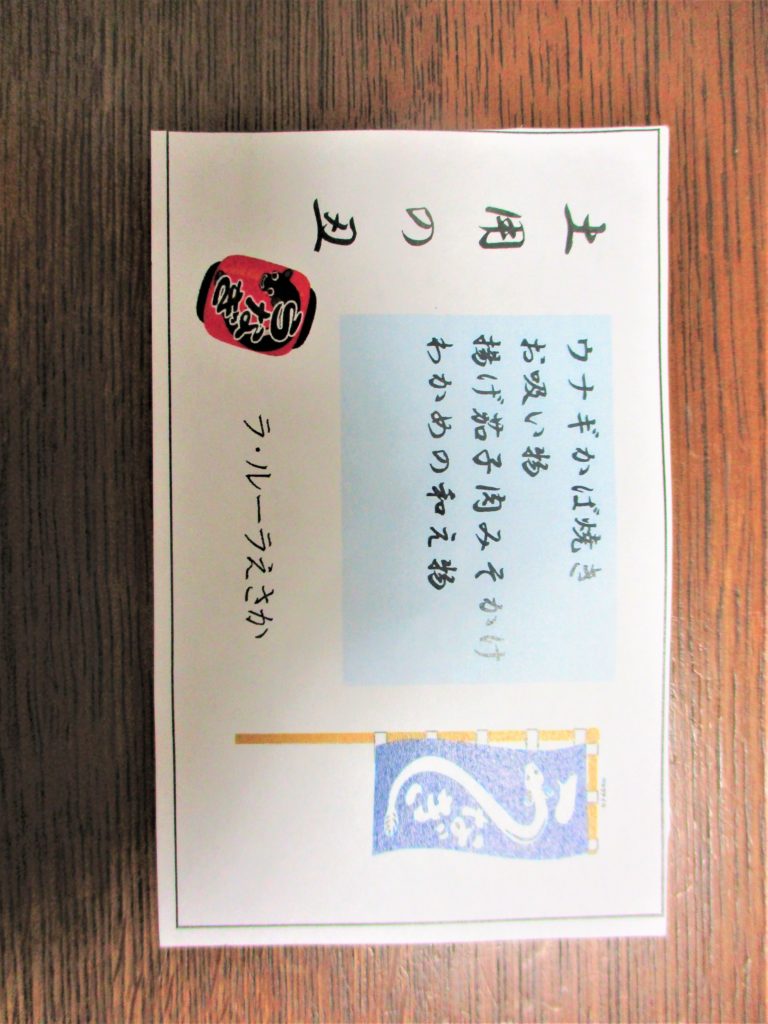 土用の丑
ウナギかば焼き
お吸い物
揚げ茄子肉みそかけ
わかめの和え物
うなぎ
ラ・ルーラえさか
うなぎ